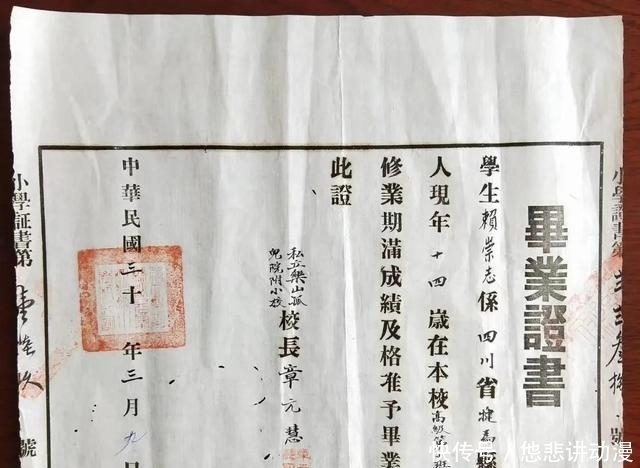 畢業證書
學生賴崇志係四川省犍為
人現年十四歲在本校高級第 班
修業期滿成績及格准予畢業
此證
私立樂山孤
兒院附小校
校長章元慧
中華民國三十 年三月九日
小學証書第
號
快传号/他悲讲动漫